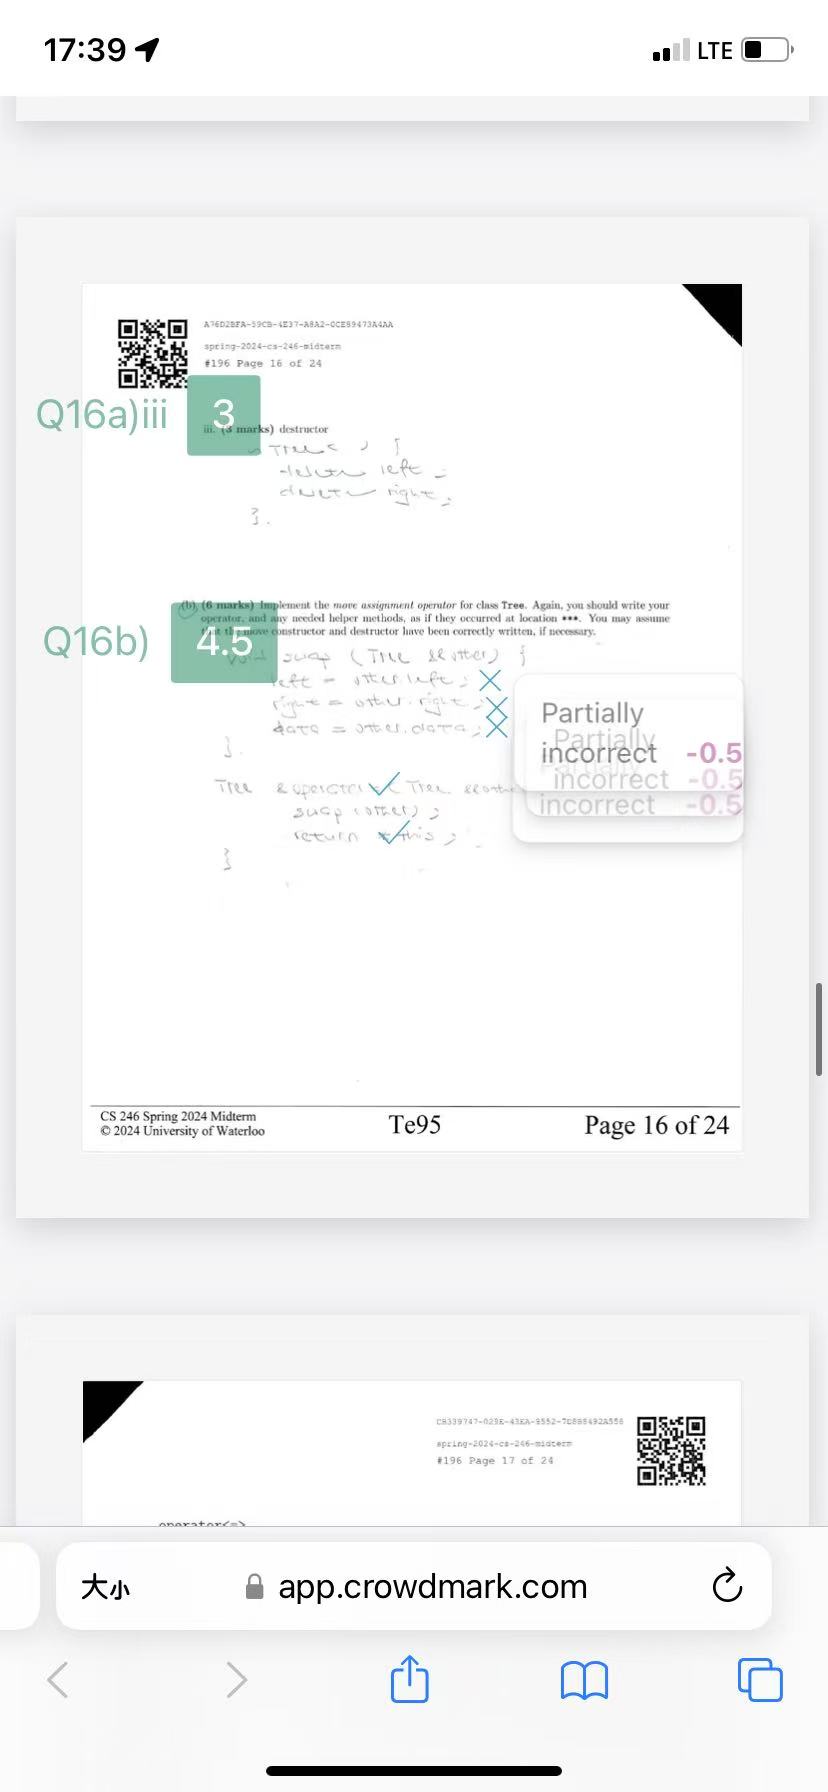 17:39
LTE
A76D2BFA-59CB-4E37-A8A2-0CE89473A4AA
spring-2024-cs-246-midterm
#196 Page 16 of 24
Q16a)iii 3
iii. (3 marks) destructor
~Tree ( ) {
delete left ;
delete right ;
}.
(b) (6 marks) Implement the move assignment operator for class Tree. Again, you should write your
operator, and any needed helper methods, as if they occurred at location ***. You may assume
that the move constructor and destructor have been correctly written, if necessary.
Q16b) 4.5
void swap (Tree &&other) {
left = other.left ;
right = other.right ;
data = other.data ;
}.
Partially
incorrect -0.5
Partially
incorrect -0.5
incorrect -0.5
Tree & operator Tree &&othe
swap (other) ;
return *this ;
}
CS 246 Spring 2024 Midterm
© 2024 University of Waterloo
Te95
Page 16 of 24
spring-2024-cs-246-midterm
#196 Page 17 of 24
operator<=>
大小
app.crowdmark.com